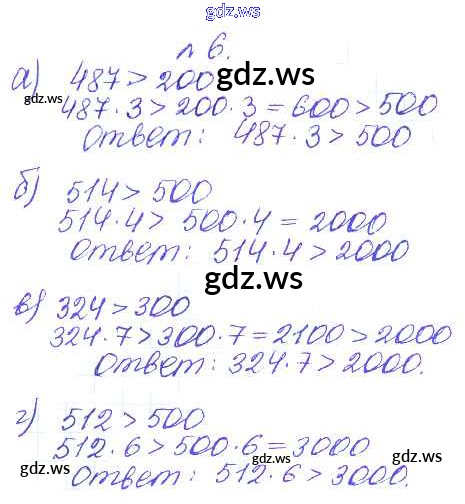 gdz.ws
№ 6.
а) 487 > 200 gdz.ws
gdz.ws 487 · 3 > 200 · 3 = 600 > 500
Ответ: 487 · 3 > 500
б) 514 > 500
514 · 4 > 500 · 4 = 2000
Ответ: 514 · 4 > 2000
gdz.ws gdz.ws
в) 324 > 300
324 · 7 > 300 · 7 = 2100 > 2000
Ответ: 324 · 7 > 2000.
г) 512 > 500
512 · 6 > 500 · 6 = 3000
Ответ: 512 · 6 > 3000.
gdz.ws gdz.ws